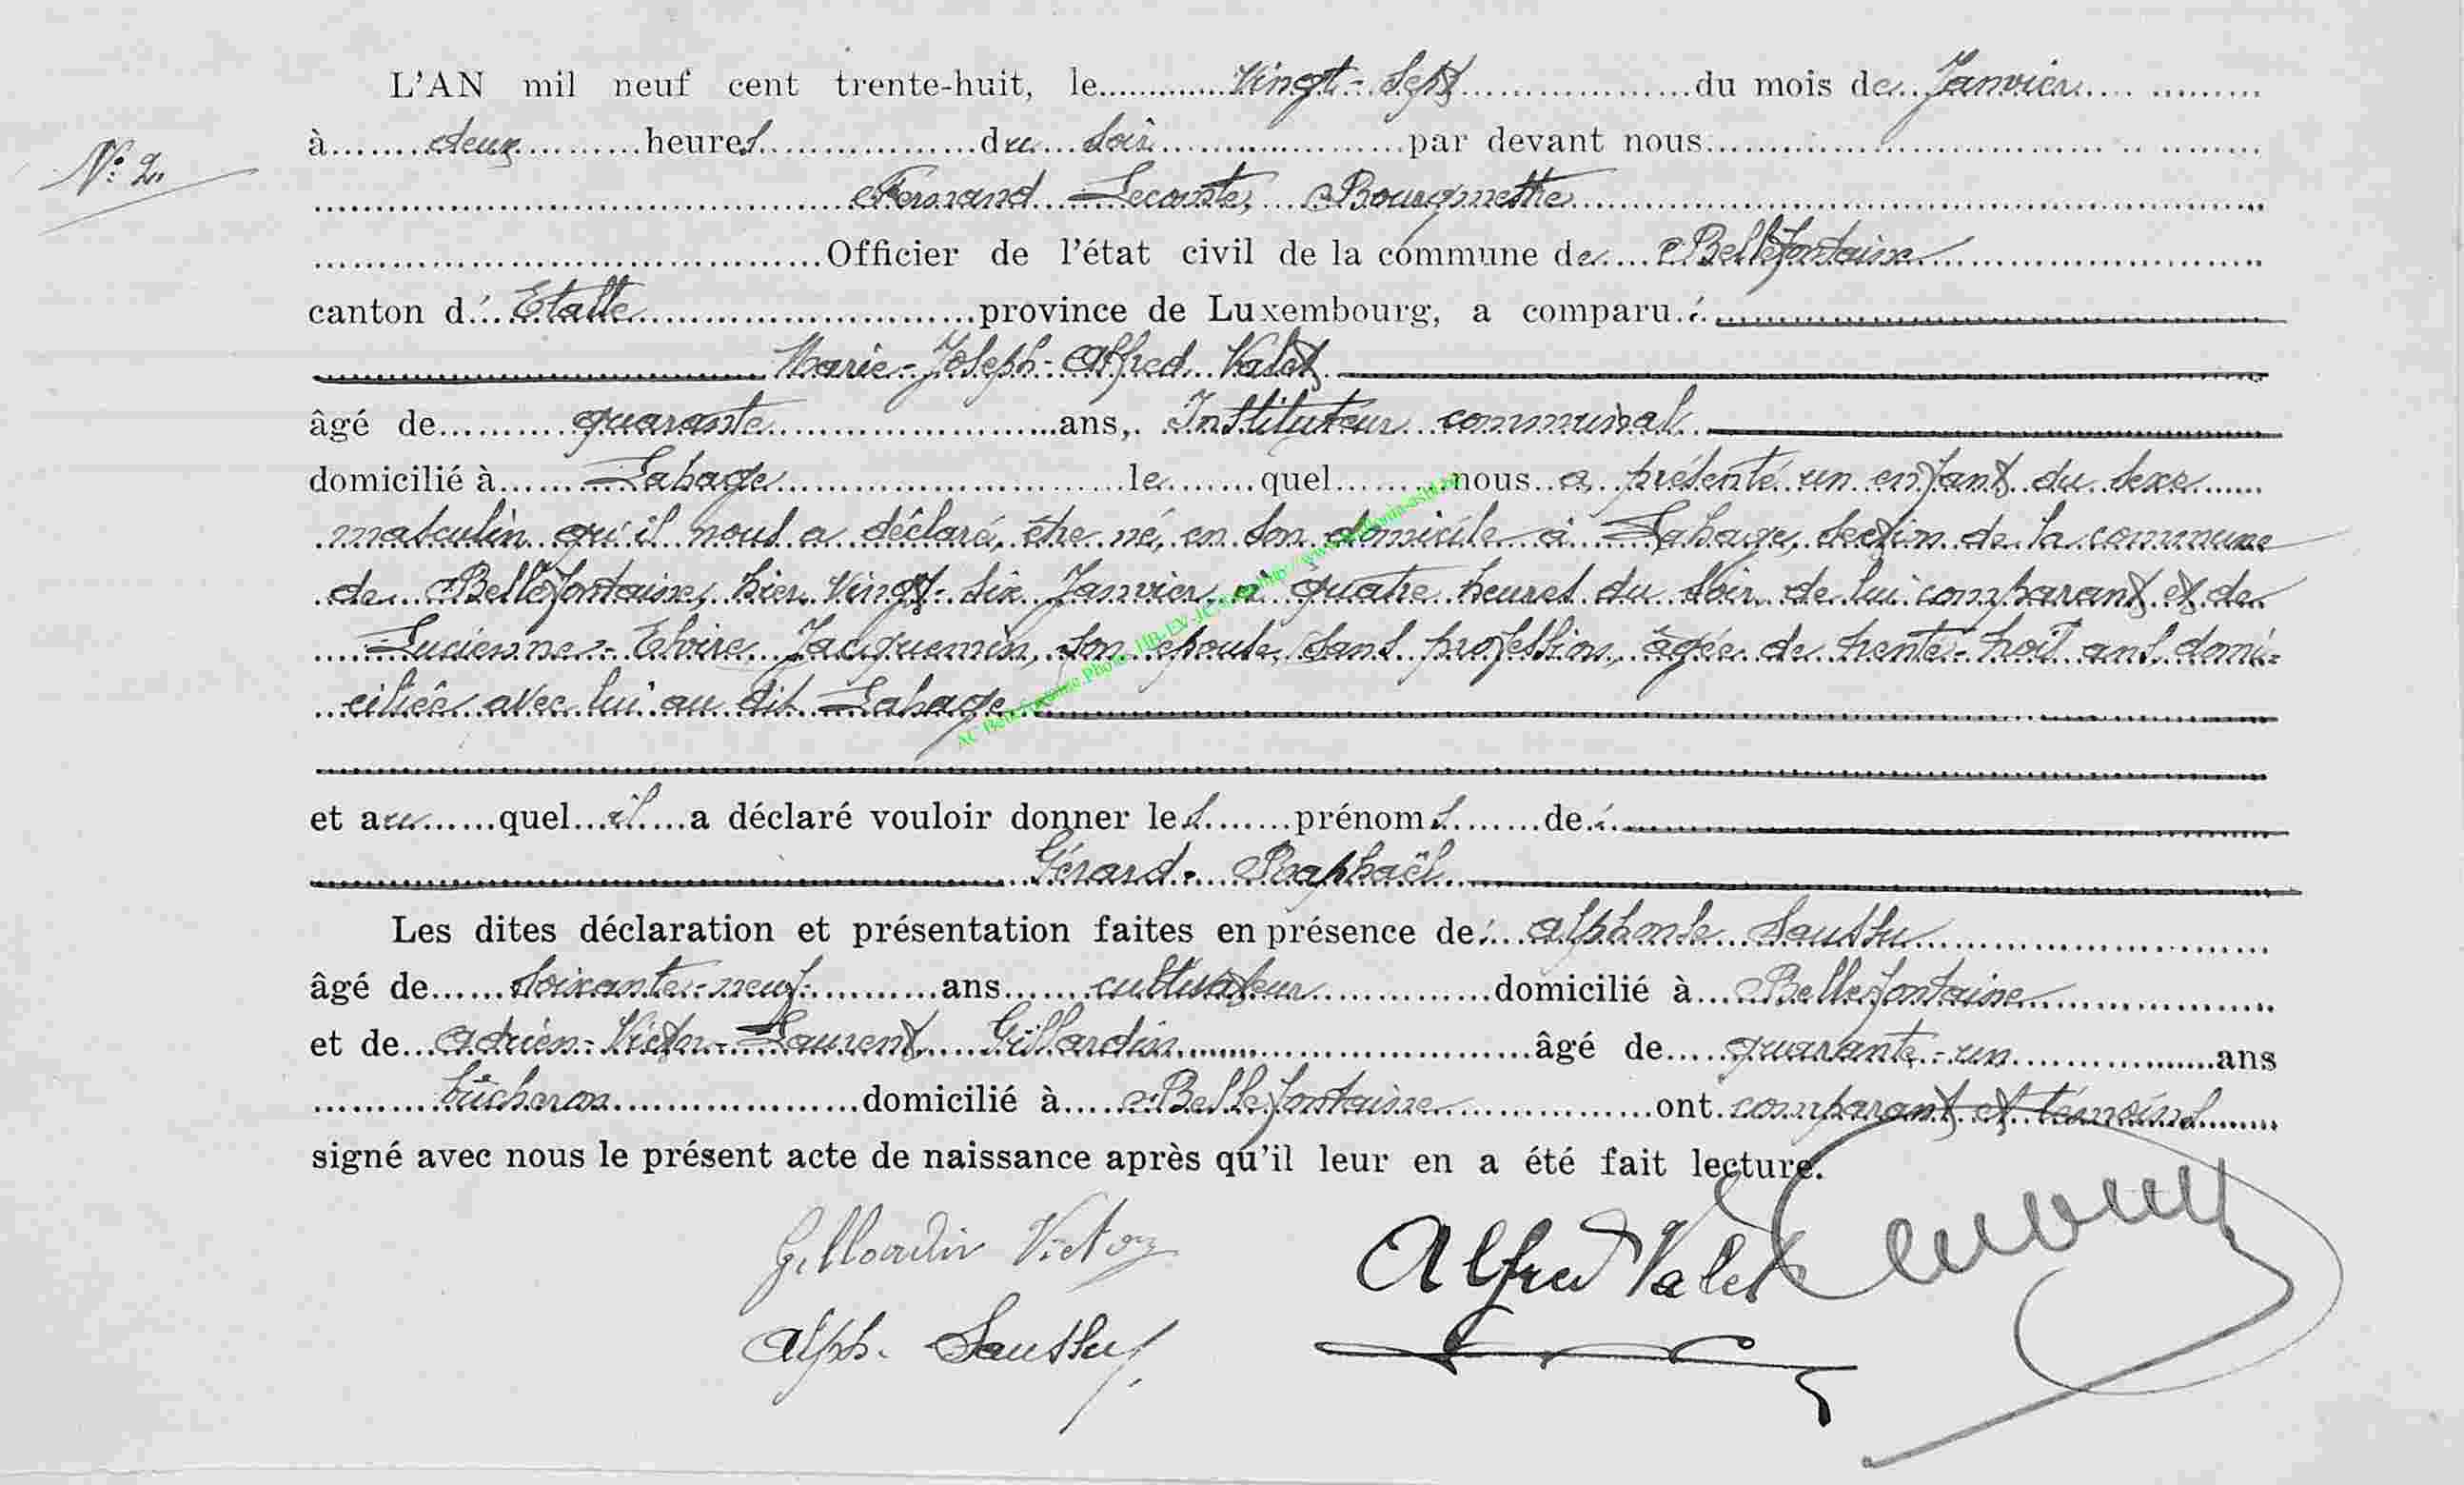 L'AN mil neuf cent trente-huit, le Vingt-Sept du mois de Janvier
N° 2.
à deux heures du soir par devant nous
Fernand Lecomte, Bourgmestre
Officier de l'état civil de la commune de Bellefontaine
canton d' Etalle province de Luxembourg, a comparu :
Marie-Joseph-Alfred Valet
âgé de quarante ans, Instituteur communal
domicilié à Lahage le quel nous a présenté un enfant du sexe
masculin qu'il nous a déclaré, être né, en son domicile à Lahage, section de la commune
de Bellefontaine, hier vingt-six Janvier à quatre heures du soir de lui comparant et de
Lucienne-Elvire Jacquemin, son épouse, sans profession, âgée de trente-huit ans, domi=
ciliée avec lui au dit Lahage
et au quel il a déclaré vouloir donner les prénoms de :
Gérard-Raphaël
Les dites déclaration et présentation faites en présence de : Alphonse Saussu
âgé de soixante-neuf ans cultivateur domicilié à Bellefontaine
et de Adrien-Victor-Laurent Gillardin âgé de quarante-un ans
bûcheron domicilié à Bellefontaine ont comparant et témoins
signé avec nous le présent acte de naissance après qu'il leur en a été fait lecture.
Gillardin Victor
Alfred Valet
Alph. Saussu